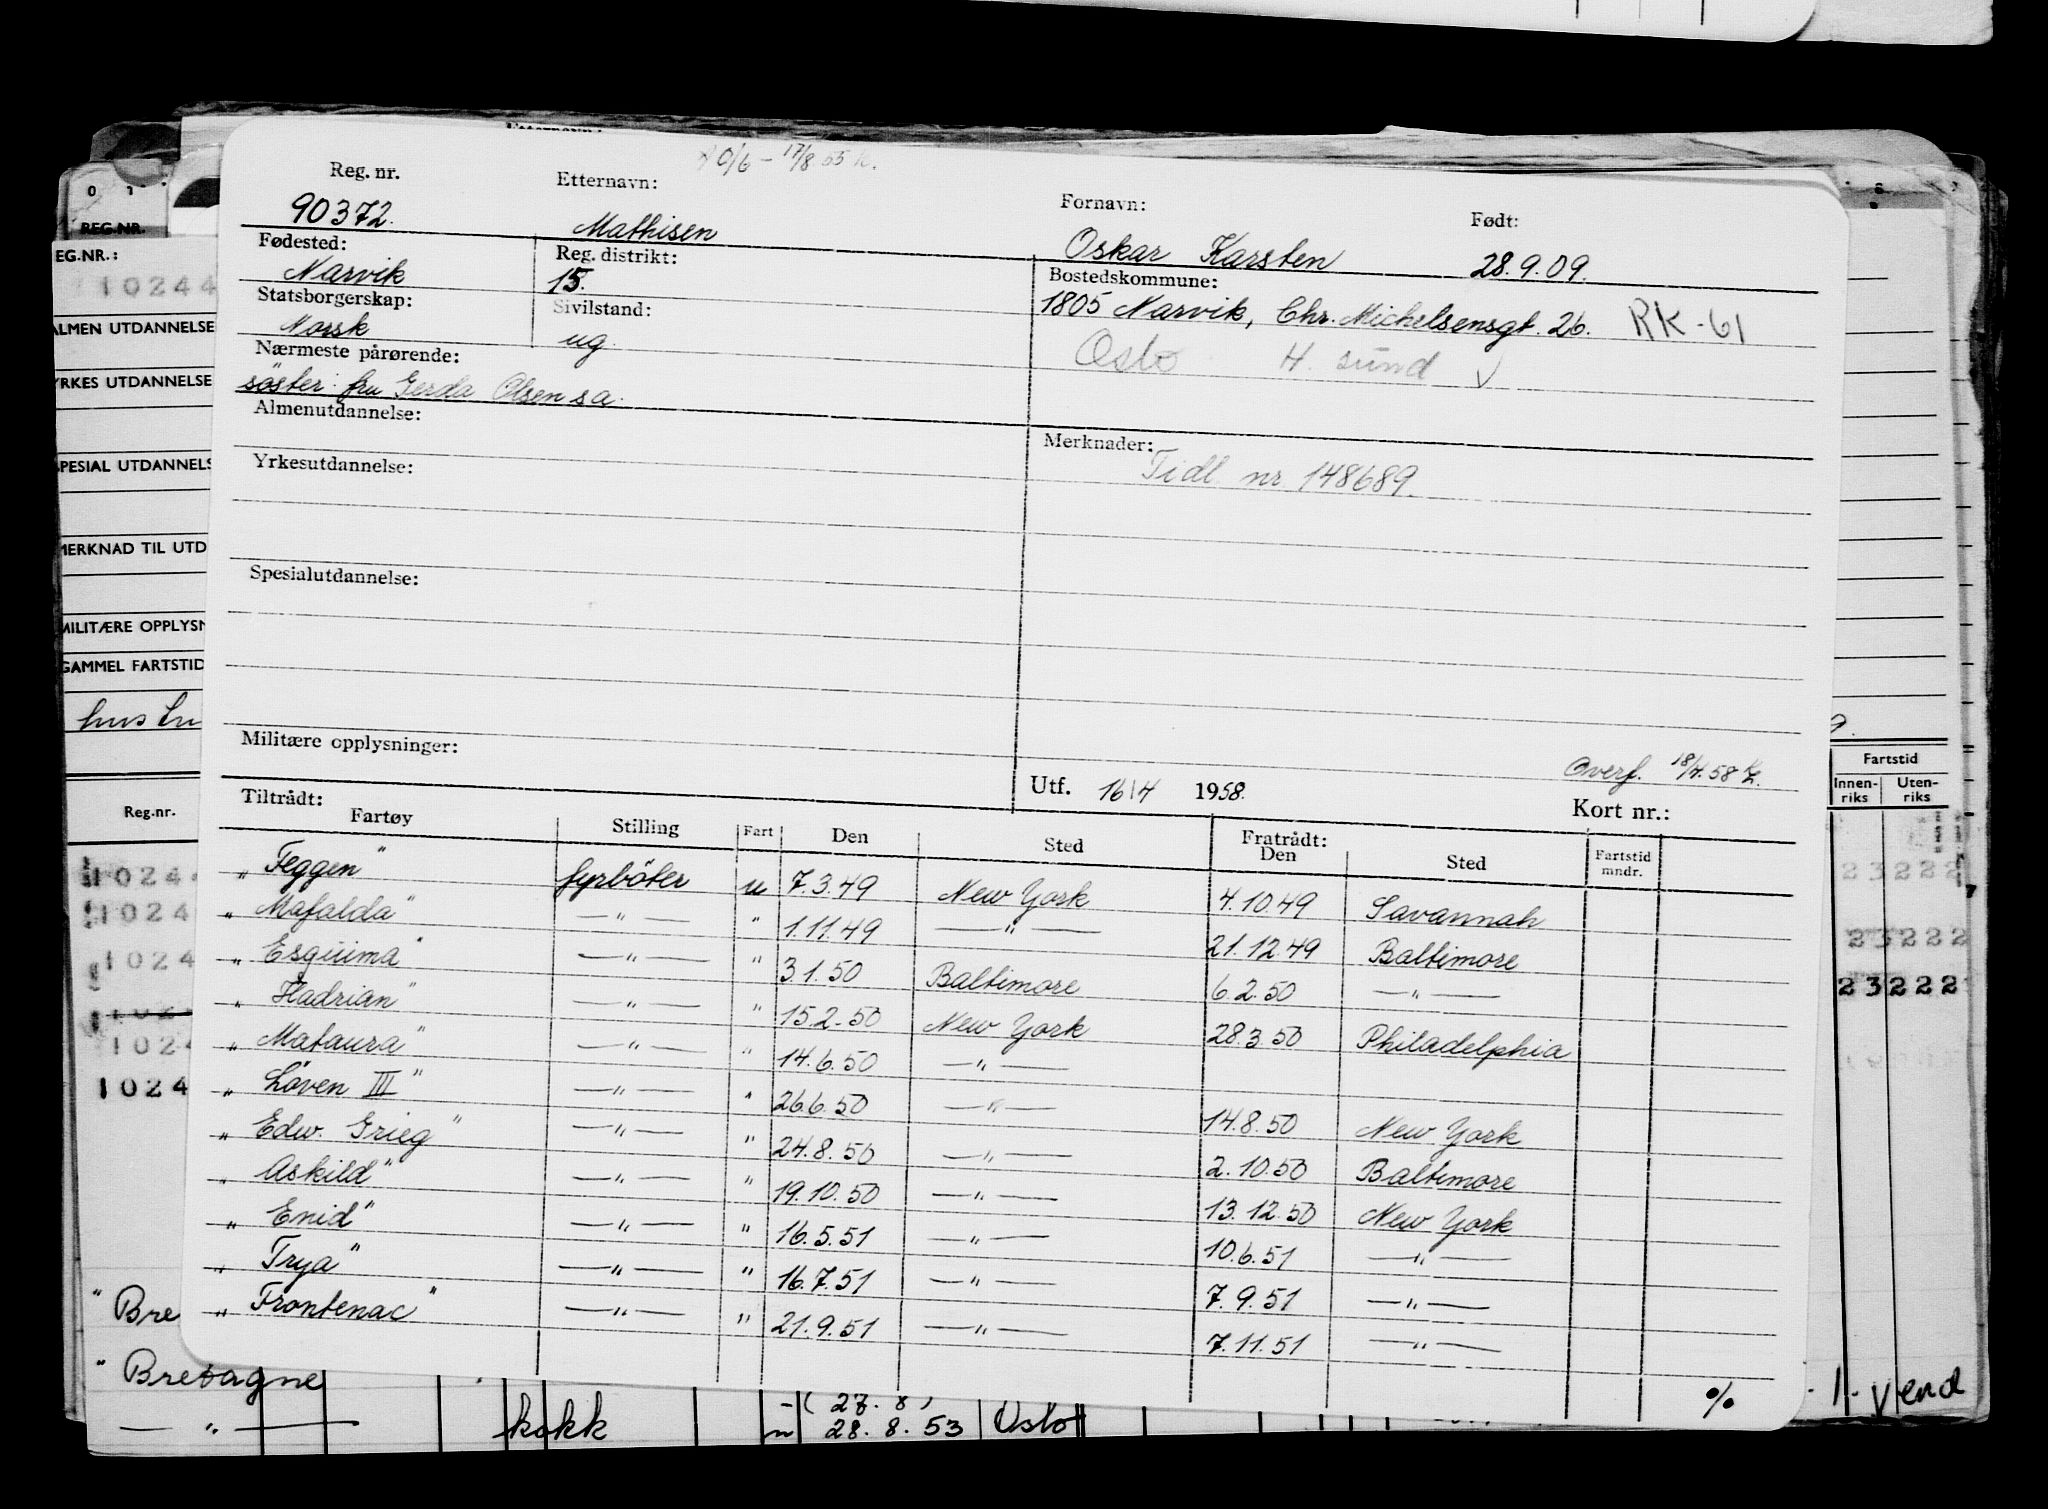 0/6 - 17/8 55
Reg. nr. Etternavn: Fornavn: Født:
90372. Mathisen Oskar Karsten 28.9.09.
Fødested: Reg. distrikt: Bostedskommune:
Narvik 15. 1805 Narvik, Chr. Michelsensgt. 26. RK-61
Statsborgerskap: Sivilstand:
Norsk ug. Oslo H. sund √
Nærmeste pårørende:
søster: fru Gerda Olsen s a.
Almenutdannelse: Merknader:
Tidl. nr 148689.
Yrkesutdannelse:
Spesialutdannelse:
Militære opplysninger: Overf. 18/4.58
Utf. 16/4 1958. Kort nr.:
Tiltrådt: Fratrådt:
Fartøy Stilling Fart Den Sted Den Sted Fartstid mndr.
„ Feggen" fyrbøter u 7.3.49 New York 4.10.49 Savannah
„ Mafalda" —"— " 1.11.49 —"— 21.12.49 Baltimore
„ Esquima" —"— " 3.1.50 Baltimore 6.2.50 —"—
„ Hadrian" —"— " 15.2.50 New York 28.3.50 Philadelphia
„ Mataura" —"— " 14.6.50 —"—
„ Løven III" —"— " 26.6.50 —"— 14.8.50 New York
„ Edw. Grieg" —"— " 24.8.50 —"— 2.10.50 Baltimore
„ Askild" —"— " 19.10.50 —"— 13.12.50 New York
„ Enid" —"— " 16.5.51 —"— 10.6.51 —"—
„ Trya" —"— " 16.7.51 —"— 7.9.51 —"—
„ Frontenac" —"— " 21.9.51 —"— 7.11.51 —"—
%
REG.NR.
EG.NR.:
10244
ALMEN UTDANNELSE
YRKES UTDANNELSE
SPESIAL UTDANNELS
MERKNAD TIL UTD
MILITÆRE OPPLYSN
GAMMEL FARTSTID
Reg.nr.
10244
1024
1024
1024
1024
Fartstid
Innen-riks Uten-riks
23222
23222
23222
" Bre
" Bretagne
—"— kokk 28.8.53 Oslo
Vend